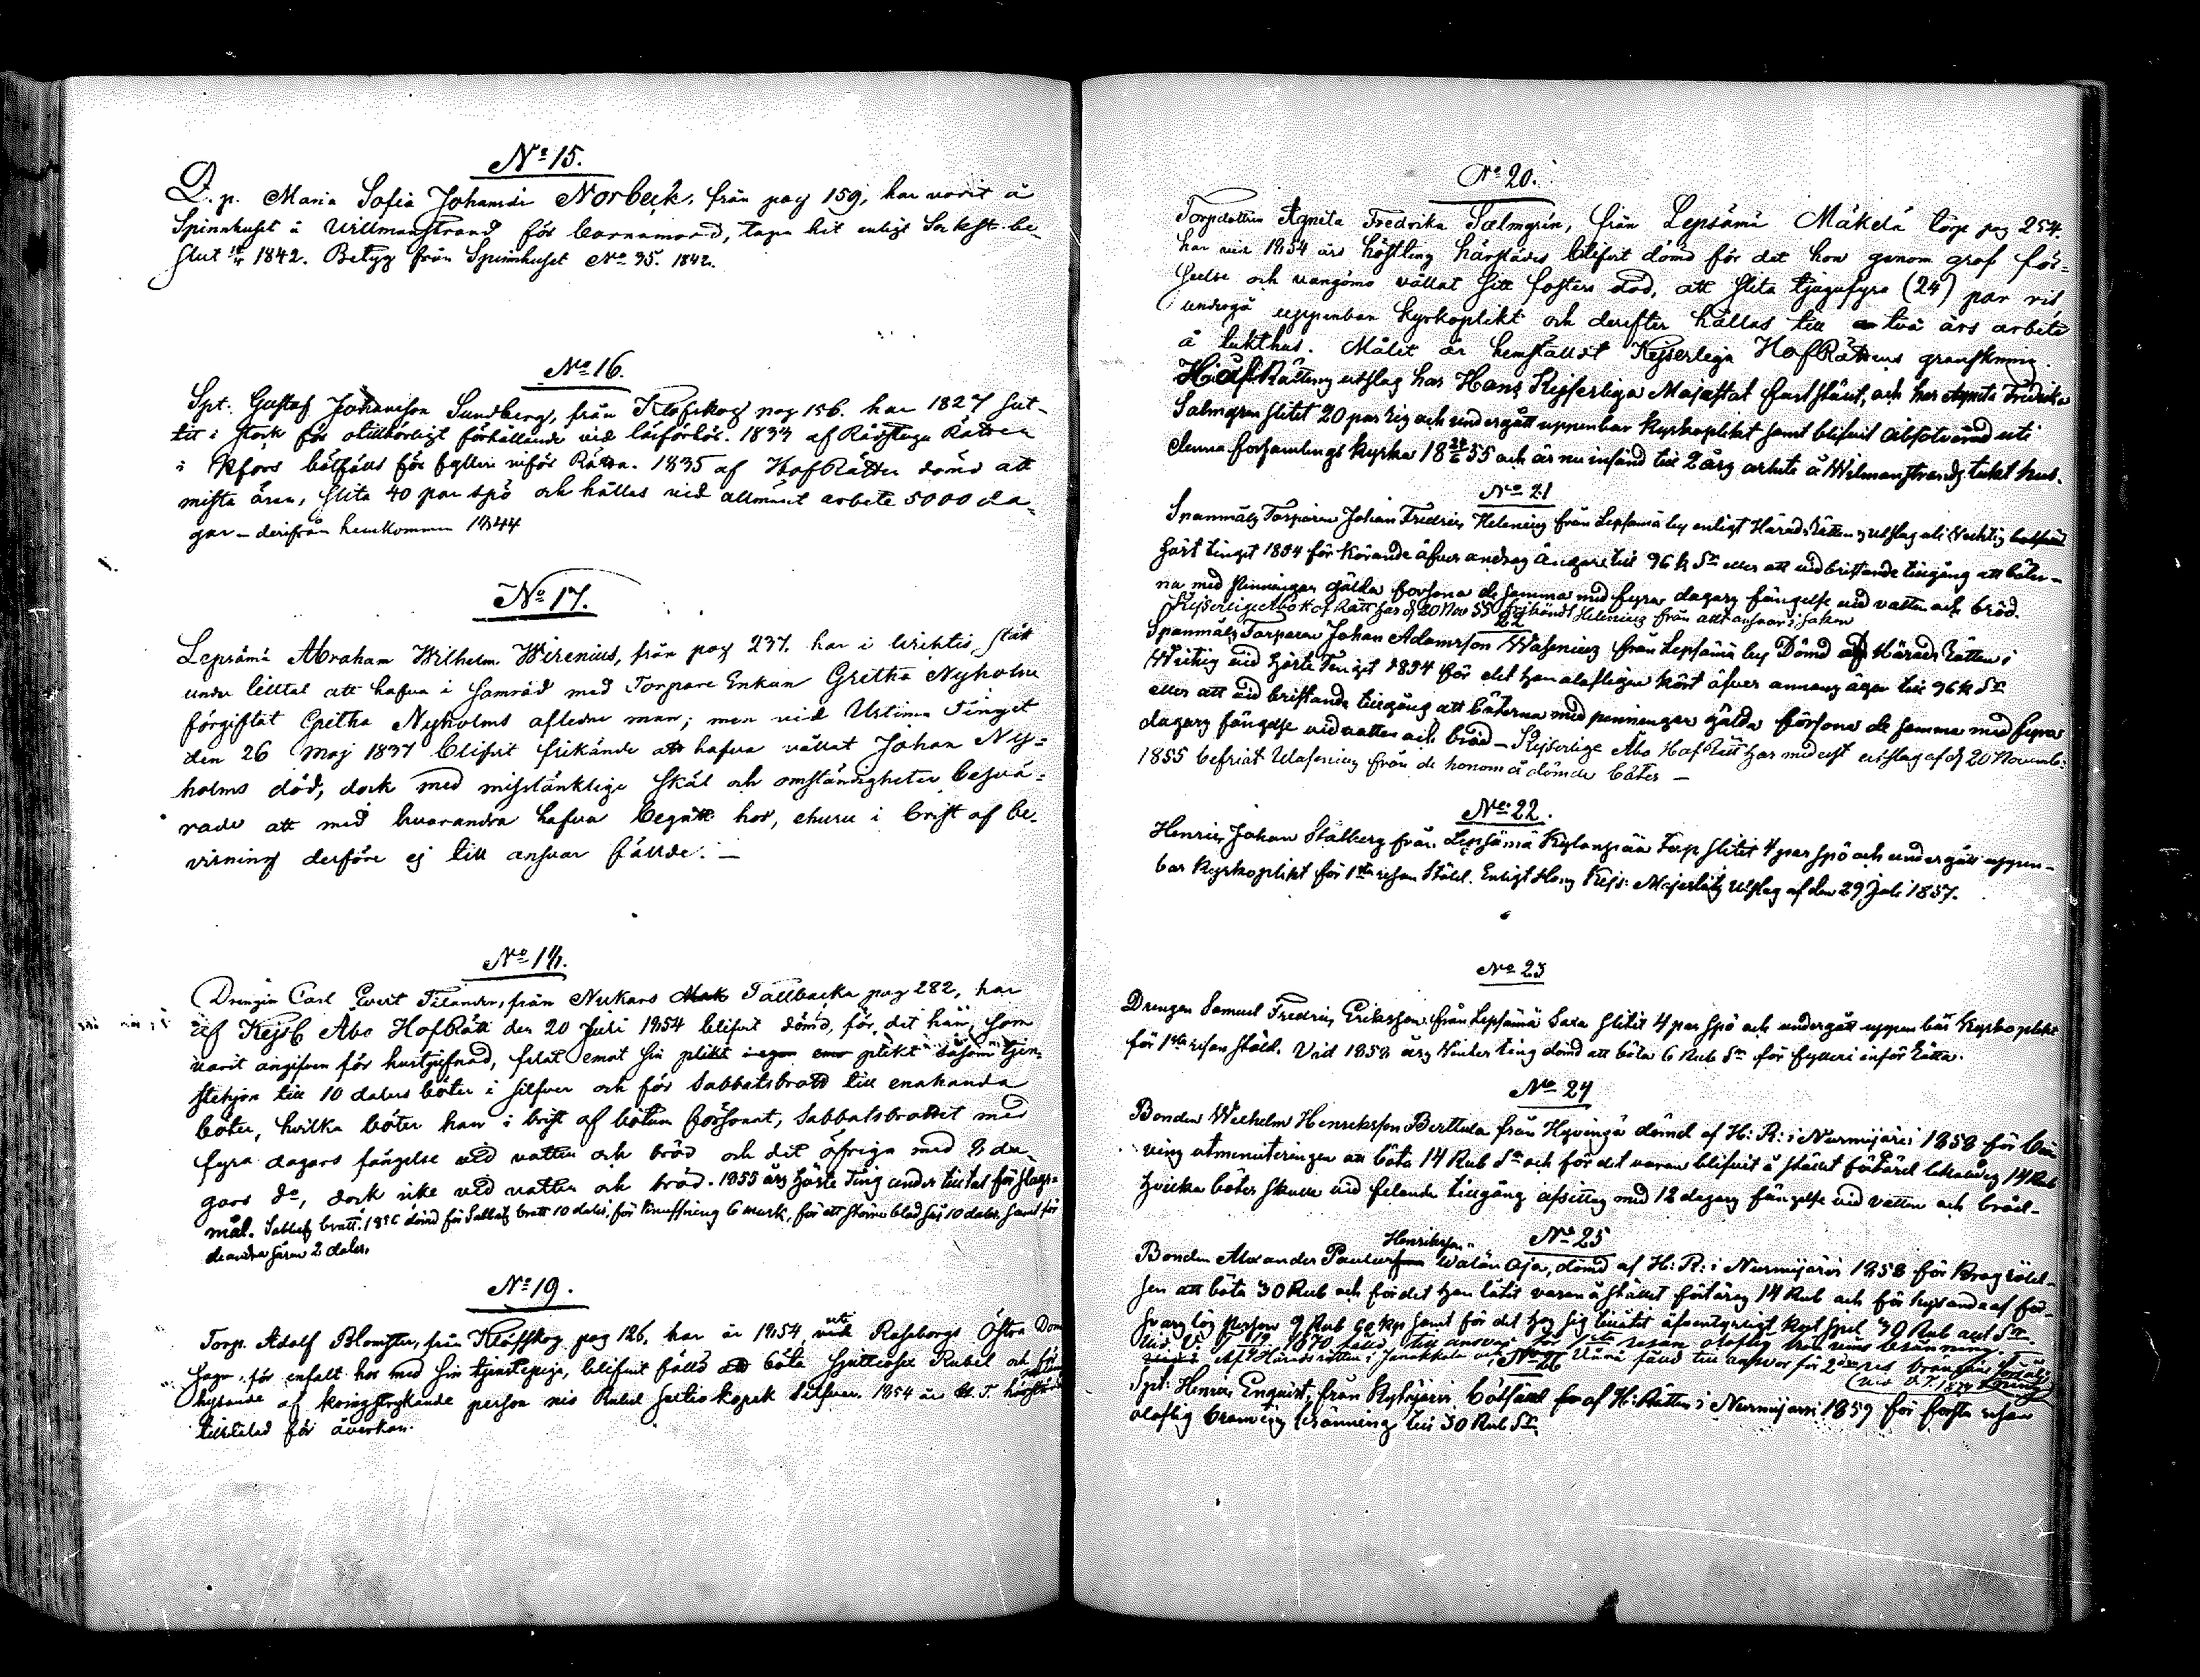 No 15.
D. p. Maria Sofia Johansdr Norbeck, från pag 159, har varit å
Spinnhuset i Villmanstrand för barnamord, tagen hit enligt Sockst. be-
slut 1842. Betyg från Spinnhuset No 35. 1842.
No 16.
Spt. Gustaf Johansson Sundberg, från Klöfskog pag 156. har 1827 sut-
tit i stock för otillbörligt förhållande vid läsförhör. 1833 af Rådstugu Rätten
i Hfors bötfälld för fylleri inför Rätta. 1835 af HofRätten dömd att
mista äran, slita 40 par spö och hållas vid allmänt arbete 5000 da-
gar – derifrån hemkommen 1844
No 17.
Lepsämä Abraham Wilhelm Wirenius, från pag 237. har i Wichtis stått
under tilltal att hafva i samråd med Torpare Enkan Gretha Nyholm
förgiftat Gretha Nyholms afledne man; men vid Urtima Tinget
den 26 Maj 1837 blifvit frikände att hafva vållat Johan Ny-
holms död, dock med misstänklige skäl och omständigheter besvä-
rade att med hvarandra hafva begått hor, ehuru i brist af be-
visning derföre ej till ansvar fällde. —
No 18.
Drengen Carl Evert Tilander, från Nukars Tallbacka pag 282, har
af Kejsl. Åbo HofRätt den 20 Juli 1854 blifvit dömd, för det han, som
varit angifven för husttjufnad, felat emot sin plikt såsom tjen-
stehjon till 10 dalers böter i silfver och för Sabbatsbrott till enahanda
böter, hvilka böter han i brist af bötum försonat, Sabbatsbrottet med
fyra dagars fängelse vid vatten och bröd och det öfriga med 8 da-
gars do, dock icke vid vatten och bröd. 1855 års höste Ting under tilltal för slags-
mål. Sabbats brott. 1856 dömd för Sabbats brott 10 daler, för knuffning 6 mark, för att 10 daler, samt för
de andra såren 2 daler.
No 19.
Torp. Adolf Blomster, från Klöfskog pag 126, har år 1854, uti Raseborgs Östra Dom
saga, för enfalt hor med sin tjenstepiga, blifvit fälld att böta Rubel och för
hysande af kringstrykande person nio Rubel sextio kopek Silfver. 1854 års H. T. härstädes
tilltalad för åverkan.
No 20.
Torpdottern Agneta Fredrika Salmgrén, från Lepsämä Mäkelä torp pag 254.
har vid 1854 års hösteting härstädes blifvit dömd för det hon genom grof för-
seelse och vangömo vållat sitt fosters död, att slita tjugufyra (24) par ris
undergå uppenbar kyrkoplikt och derefter hållas till två års arbete
å tukthus. Målet är hemstäldt Kejserliga HofRättens granskning.
HofRättens utslag har Hans Kejserliga Majestät faststält, och har Agneta Fredrika
Salmgren slitit 20 par ris och undergått uppenbar Kyrkoplikt samt blifvit absolverad uti
denna församlings kyrka 18 55 och är nu insänd till 2 års arbete å Wilmanstrands tukthus.
No 21
Spanmåls Torparen Johan Fredric Helenius från Lepsämä by enligt HäradsRättens utslag uti Wichtis
höst tinget 1854 för körande öfver andras ängar till 96 k Sr eller att vid bristande tillgång att böter-
na med penningar gälda försona de samma med fyra dagars fängelse vid vatten och bröd.
Kejserliga Åbo HofRätt har d. 20 Nov 55 frikändt Helenius från allt ansvar i saken
22
Spanmåls Torparen Johan Adamsson Wasenius från Lepsämä by Dömd af Härads Rätten i
Wichtis vid höste Tinget 1854 för det han olofligen kört öfver annans ägor till 96 k Sr
eller att vid bristande tillgång att böterna med penningar gälda försona de samma med fyra
dagars fängelse vid vatten och bröd – Kejserliga Åbo HofRätt har med ett utslag af d. 20 Novemb:
1855 befriat Wasenius från de honom ådömda böter —
No 22.
Henric Johan Stålberg från Lepsämä Kylänpää Torp slitit 4 par spö och undergått uppen-
bar Kyrkoplikt för 1sta resan Stöld. Enligt Hans Kejs: Majestäts Utslag af den 29 Juli 1857.
No 23
Drengen Samuel Fredric Eriksson från Lepsämä Saxa slitit 4 par spö och undergått uppenbar Kyrkoplikt
för 1sta resan stöld. Vid 1858 års Winter ting dömd att böta 6 Rub Sr för fylleri inför Rätta.
No 24
Bonden Wilhelm Henriksson Berttula från Hyvinge dömd af H: R: i Nurmijärvi 1858 för
utminuteringen att böta 14 Rub Sr och för det varan blifvit å stället förtärd likaledes 14 Rub
hvilka böter skulle vid felande tillgång afsittas med 12 dagars fängelse vid vatten och bröd –
No 25
Bonden Alexander Henriksson Walän Oja, dömd af H: R: i Nurmijärvi 1858 för
sen att böta 30 Rub och för det han låtit varan å stället förtäras 14 Rub och för hysande af för-
svarslös person 9 Rub 60 kp samt för det hos sig tillåtit äfventyrligt kort spel 30 Rub allt Sr.
Vid V. T. 1870 fälld till ansvar för 1sta resan oloflig bränvins bränning.
Af Häradsrätten i Janakkala fälld till ansvar för 2dra res bränvins försälj
No 26
Spt: Henric Enqvist, från Kytäjärvi bötfäld af H:Rätten i Nurmijärvi 1859 för första resan
oloflig bränvins bränning till 30 Rub Sr.